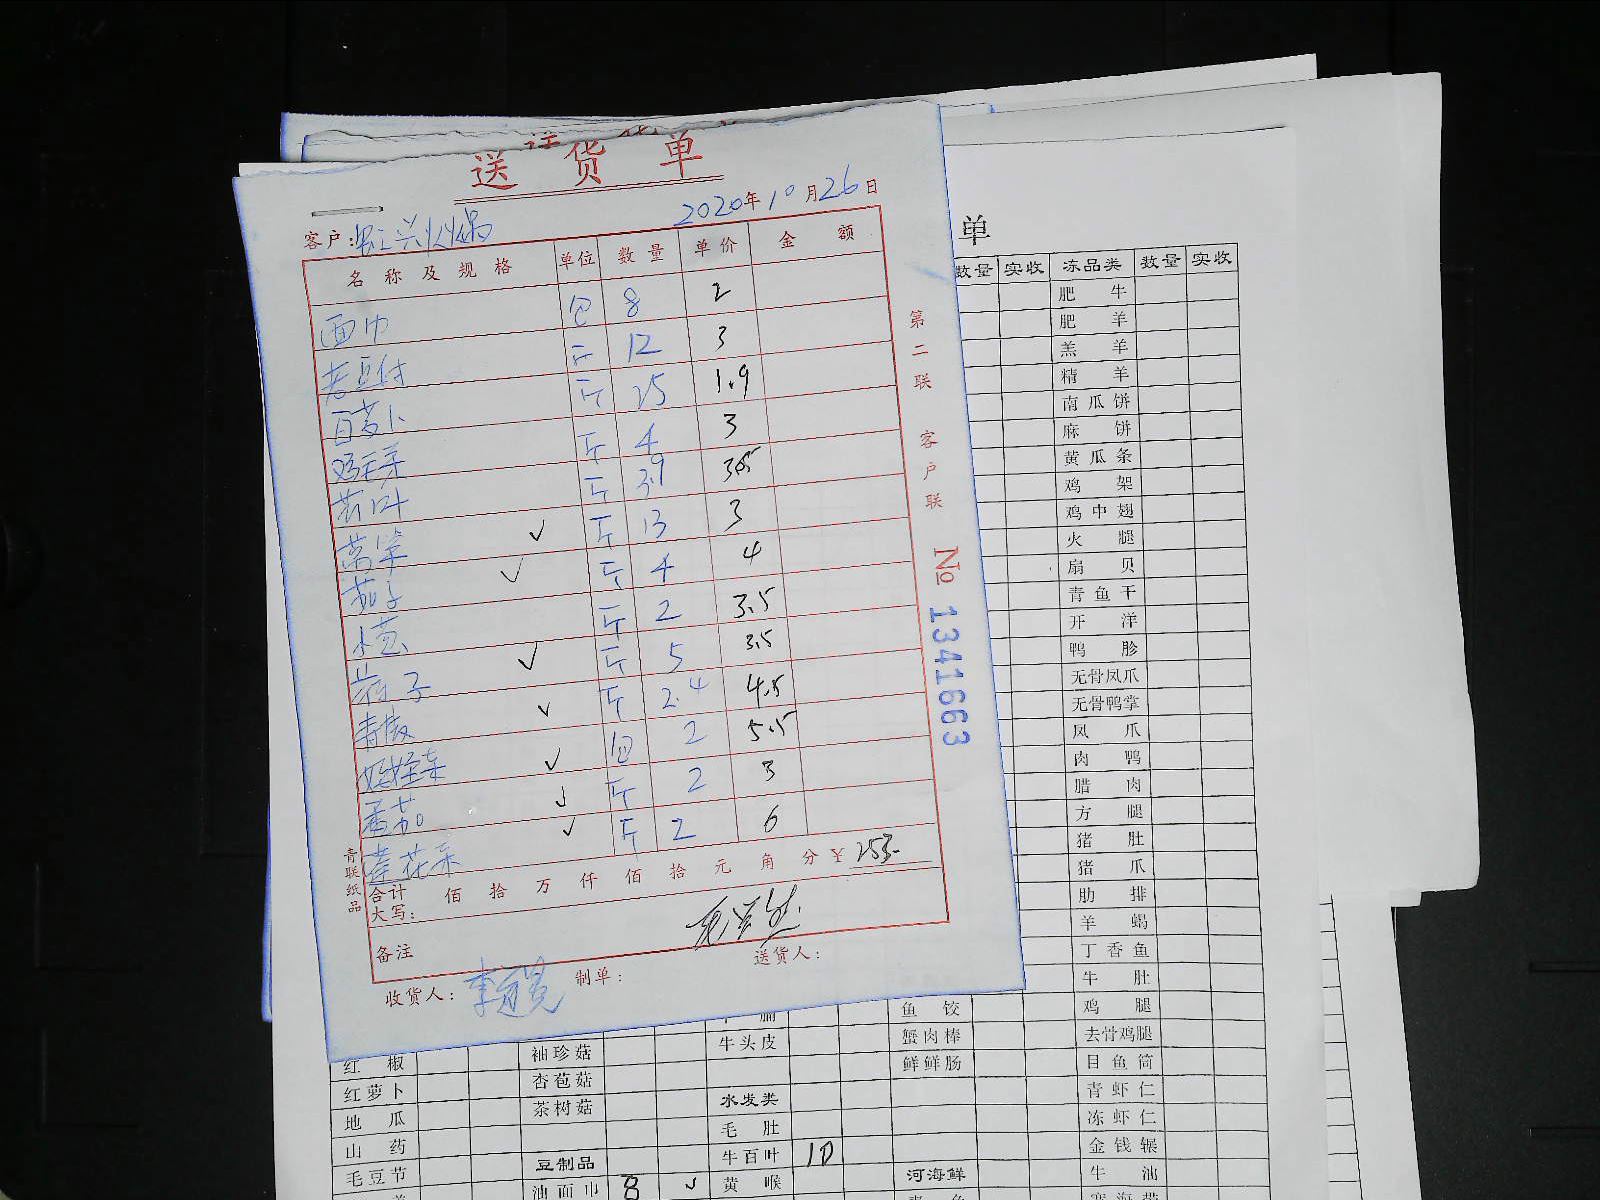 送货单
2020年10月26日
客户:
名称及规格 单位 数量 单价 金额
面巾 包 8 2
老豆付 斤 12 3
白萝卜 斤 25 1.9
鸡毛菜 斤 4 3
斤 3.9 3.5
莴笋 斤 13 3
茄子 斤 4 4
小葱 斤 2 3.5
斤 5 3.5
青椒 斤 2.4 4.5
娃娃菜 包 2 5.5
番茄 斤 2 3
花菜 斤 2 6
合计大写: 佰 拾 万 仟 佰 拾 元 角 分 ¥ 253
备注
收货人: 制单: 送货人:
青联纸品
第二联 客户联 № 1341663
单
数量 实收 冻品类 数量 实收
肥牛
肥羊
羔羊
精羊
南瓜饼
麻饼
黄瓜条
鸡架
鸡中翅
火腿
扇贝
青鱼干
开洋
鸭胗
无骨凤爪
无骨鸭掌
凤爪
肉鸭
腊肉
方腿
猪肚
猪爪
肋排
羊蝎
丁香鱼
牛肚
鱼饺 鸡腿
牛头皮 蟹肉棒 去骨鸡腿
红椒 袖珍菇 鲜鲜肠 目鱼筒
红萝卜 杏苞菇 水发类 青虾仁
地瓜 茶树菇 毛肚 冻虾仁
山药 牛百叶 10 金钱辗
毛豆节 豆制品 黄喉 河海鲜 牛油
油面巾 8